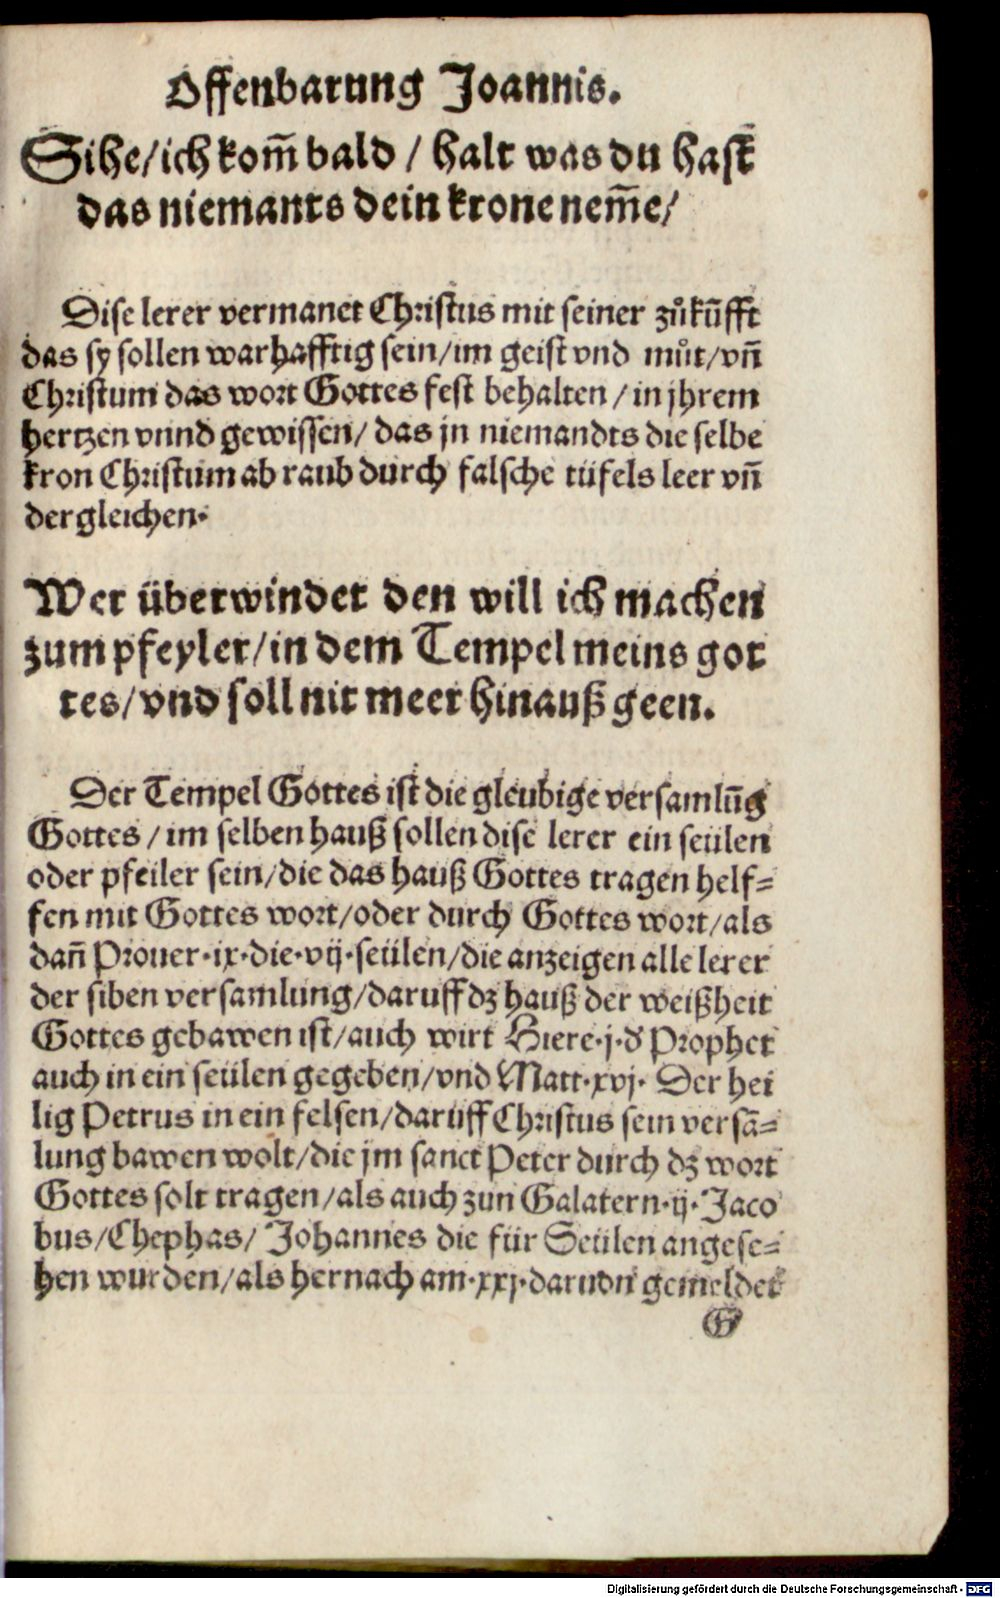 Offenbarung Joannis.
Sihe/ich kom̃ bald / halt was du hast
das niemants dein krone nem̃e/
Dise lerer vermanet Christus mit seiner zůkũfft
das sy sollen warhafftig sein/im geist vnd můt/vñ
Christum das wort Gottes fest behalten / in jhrem
hertzen vnnd gewissen/ das jn niemandts die selbe
kron Christum ab raub durch falsche tüfels leer vñ
der gleichen.
Wer überwindet den will ich machen
zum pfeyler/in dem Tempel meins got
tes/vnd soll nit meer hinauß geen.
Der Tempel Gottes ist die gleubige versamlũg
Gottes / im selben hauß sollen dise lerer ein seülen
oder pfeiler sein/die das hauß Gottes tragen helf⸗
fen mit Gottes wort/oder durch Gottes wort/als
dañ Prouer.ix.die.vij.seülen/die anzeigen alle lerer
der siben versamlung/daruff dz hauß der weißheit
Gottes gebawen ist/auch wirt Hiere.j.d̕ Prophet
auch in ein seülen gegeben/vnd Matt.xvj. Der hei
lig Petrus in ein felsen/daruff Christus sein versã⸗
lung bawen wolt/die jm sanct Peter durch dz wort
Gottes solt tragen/als auch zun Galatern.ij.Jaco
bus/Chephas/ Johannes die für Seülen angese⸗
hen wurden/als hernach am.xxj.daruon gemeldet
G
Digitalisierung gefördert durch die Deutsche Forschungsgemeinschaft - DFG